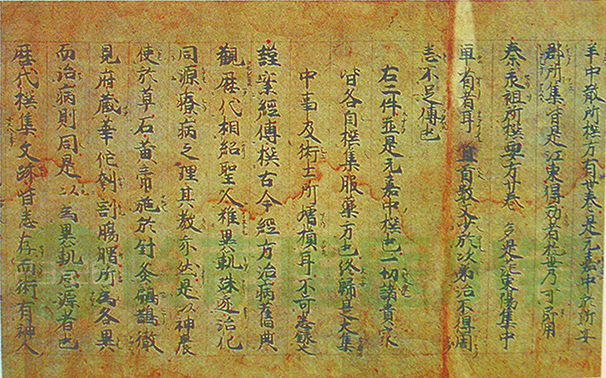 羊中散所撰方有卅卷是元嘉中於新安
郡所集皆是江東得効者於世乃可即用
秦承祖所撰要方廿卷 是江東陽集中
單有者耳 且首數又少於次第治不得周
悉不足傳也
右二件並是元嘉中撰也一切諸貴家
皆各自撰集服藥方也終歸是大集
中事及術士所增損耳不可悉錄也
謹案經傳撰古今經方治病舊典
觀歷代相紹聖人雖異軌殊迹治化
同源療病之理其教亦然是以神農
使於草石黃帝施於針灸扁鵲徹
見府藏華佗刳割腸 所為各異
而治病則同是以為異軌同源者也
歷代撰集文跡皆悉存而術有神人